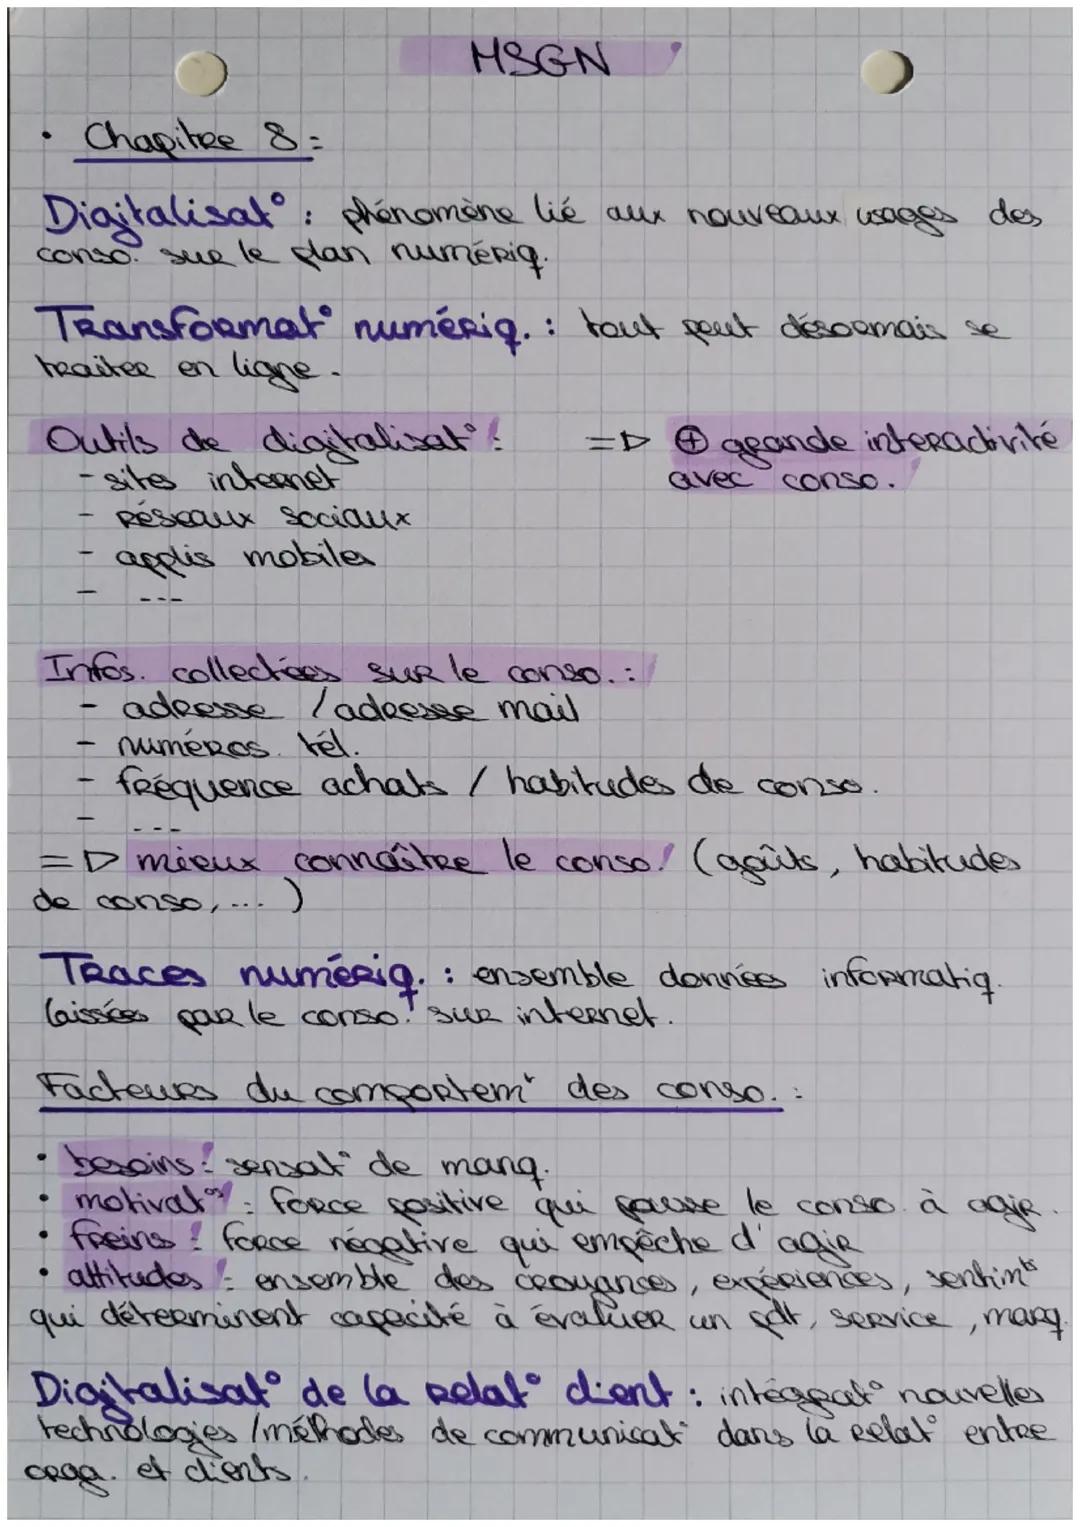 MSGN
• Chapitre 8 :
Digitalisat° : phénomène lié aux nouveaux usages des
conso. sur le plan numériq.
Transformat° numériq. : tout peut désormais se
traiter en ligne.
Outils de digitalisat° :
- sites internet
- réseaux sociaux
- applis mobiles
- ...
=> ⊕ grande interactivité
avec conso.
Infos. collectées sur le conso. :
- adresse / adresse mail
- numéros. tél.
- fréquence achats / habitudes de conso.
- ...
=> mieux connaître le conso. (goûts, habitudes
de conso, ... )
Traces numériq. : ensemble données informatiq.
laissées par le conso. sur internet.
Facteurs du comportemt des conso. :
• besoins : sensat° de manq.
• motivat°s : force positive qui pousse le conso. à agir.
• freins : force négative qui empêche d'agir
• attitudes : ensemble des croyances, expériences, sentimts
qui déterminent capacité à évaluer un pdt, service, marq.
Digitalisat° de la relat° client : intégrat° nouvelles
technologies / méthodes de communicat° dans la relat° entre
orga. et clients.